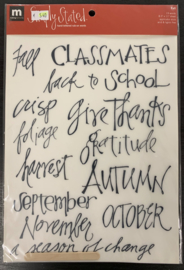 m
Simply Stated
fall
CLASSMATES
back to SCHOOL
crisp
give Thanks
foliage
gratitude
harvest
AUTUMN
September
November
OCTOBER
a season of change